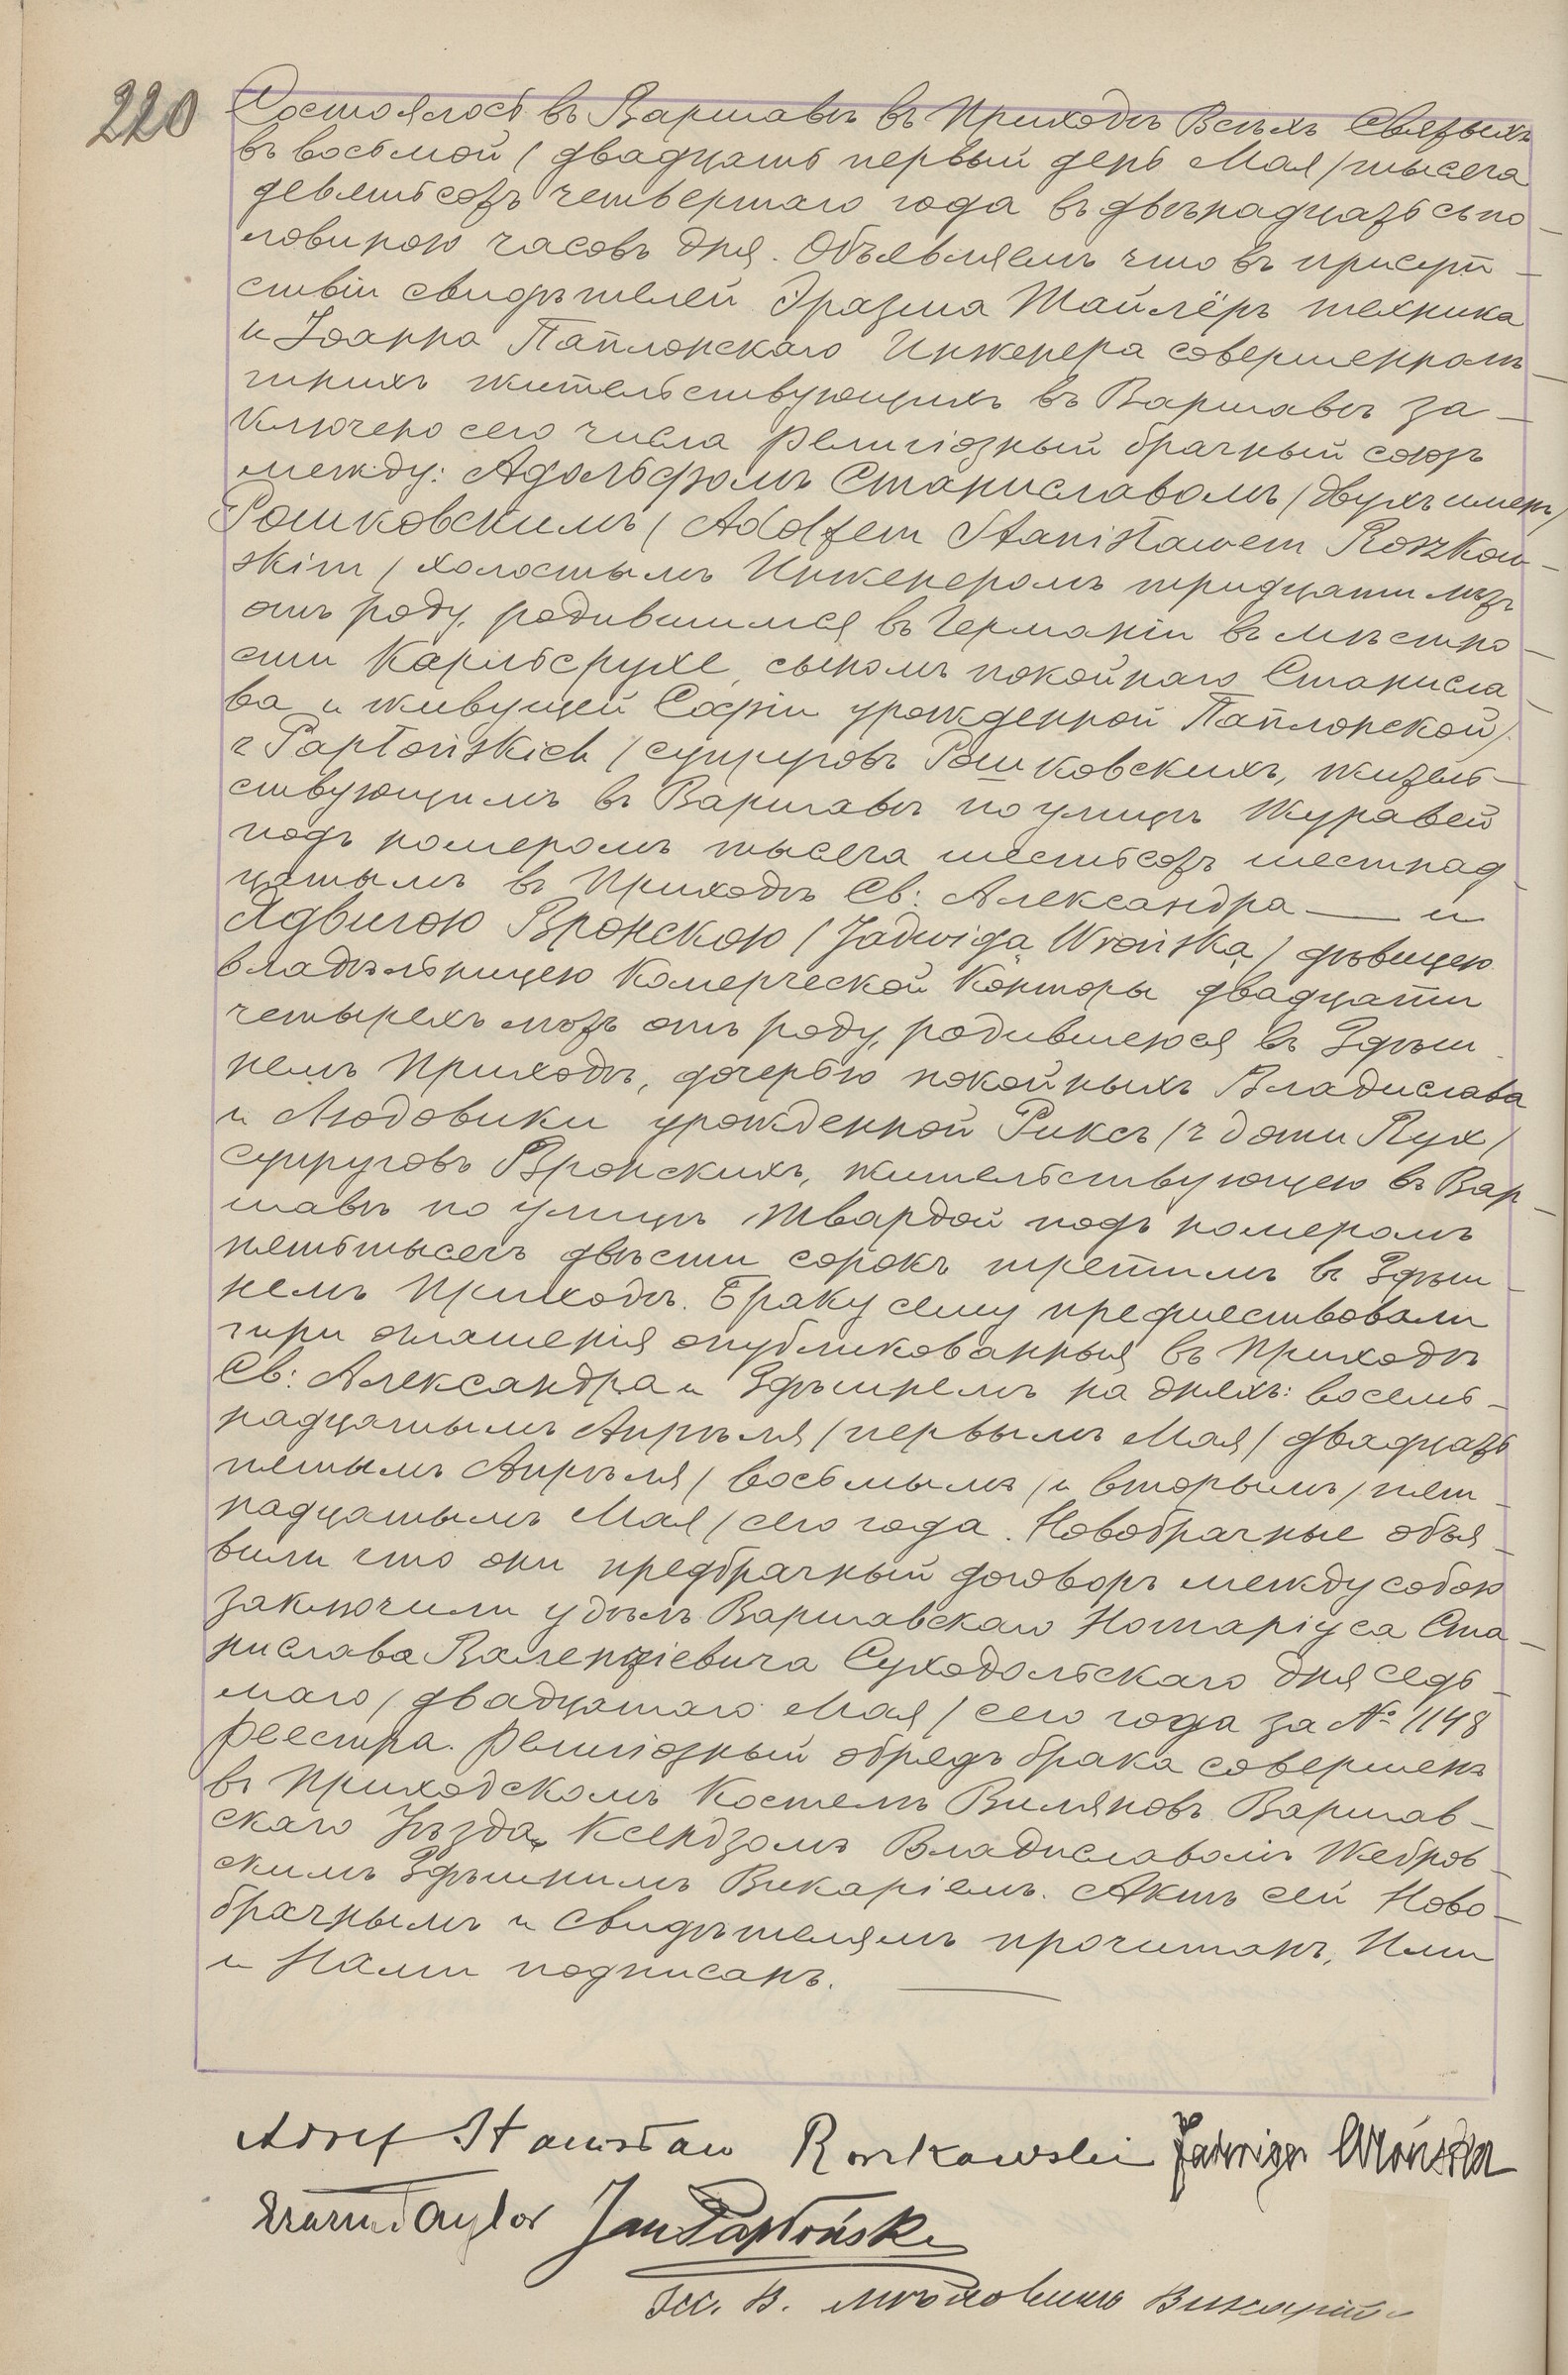 220
Состоялось въ Варшавѣ въ Приходѣ Всѣхъ Святыхъ
въ восьмой / двадцать первый день Мая / тысеча
девятьсотъ четвертаго года въ двѣнадцать съ по-
ловиною часовъ дня. Объявляемъ что въ присут-
ствіи свидѣтелей Эразма Тайлёръ техника
и Іоанна Паплонскаго Инженера совершеннолѣ-
тнихъ жительствующихъ въ Варшавѣ за-
ключено сего числа религіозный брачный союзъ
между: Адольфомъ Станиславомъ / двухъ именъ /
Рошковскимъ / Adolfem Stanisławem Roszkow-
skim / холостымъ Инженеромъ тридцати лѣтъ
отъ роду, родившимся въ Германіи въ мѣстно-
сти Карльсрухе, сыномъ покойнаго Станисла-
ва и живущей Софіи урожденной Паплонской /
z Papłońskich / супруговъ Рошковскихъ, житель-
ствующимъ въ Варшавѣ по улицѣ Журавей
подъ номеромъ тысеча шестьсотъ шестнад-
цатымъ въ Приходѣ Св: Александра — и
Ядвигою Вронскою / Jadwigą Wrońską / дѣвицею
владѣльницею Комерческой Конторы двадцати
четырехъ лѣтъ отъ роду, родившеюся въ Здѣш-
немъ Приходѣ, дочерью покойныхъ Владислава
и Людовики урожденной Риксъ / z domu Ryx /
супруговъ Вронскихъ, жительствующею въ Вар-
шавѣ по улицѣ Твардой подъ номеромъ
петьтысечъ двѣсти сорокъ третимъ въ Здѣш-
немъ Приходѣ. Браку сему предшествовали
три оглашенія опубликованныя въ Приходѣ
Св: Александра и Здѣшнемъ на дняхъ: восемь-
надцатымъ Апрѣля / первымъ Мая / двадцать
петымъ Апрѣля / восьмымъ / и вторымъ / пят-
надцатымъ Мая / сего года. Новобрачные объя-
вили что они предбрачный договоръ между собою
заключили у дѣлъ Варшавскаго Нотаріуса Ста-
нислава Валентіевича Суходольскаго дня седь-
маго / двадцатаго Мая / сего года за № 1148
реестра. Религіозный обрядъ брака совершенъ
въ Приходскомъ Костелѣ Виляновъ Варшав-
скаго Уѣзда, Ксендзомъ Владиславомъ Жебров-
скимъ Здѣшнимъ Викаріемъ. Актъ сей Ново-
брачнымъ и Свидѣтелямъ прочитанъ, Ими
и Нами подписанъ.
Adolf Stanisław Roszkowski Jadwiga Wrońska
Erazm Taylor Jan Papłoński
Кс. В. Викарій